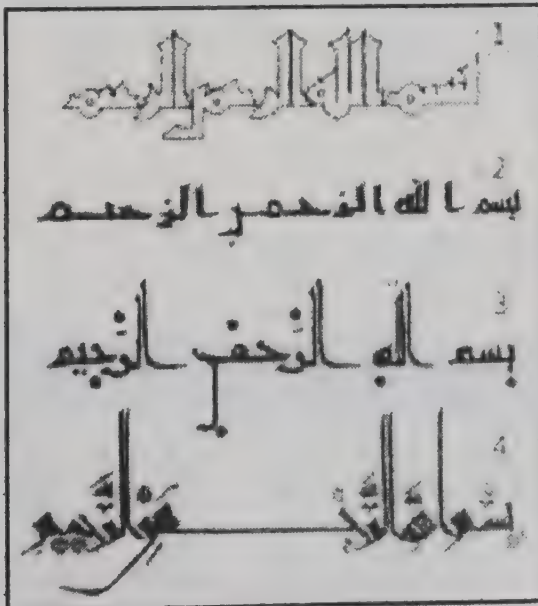 1 بسم الله الرحمن الرحيم
2 بسم الله الرحمن الرحيم
3 بسم الله الرحمن الرحيم
4 بسم الله الرحمن الرحيم